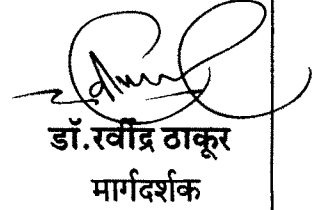 डॉ.रवींद्र ठाकूर
मार्गदर्शक